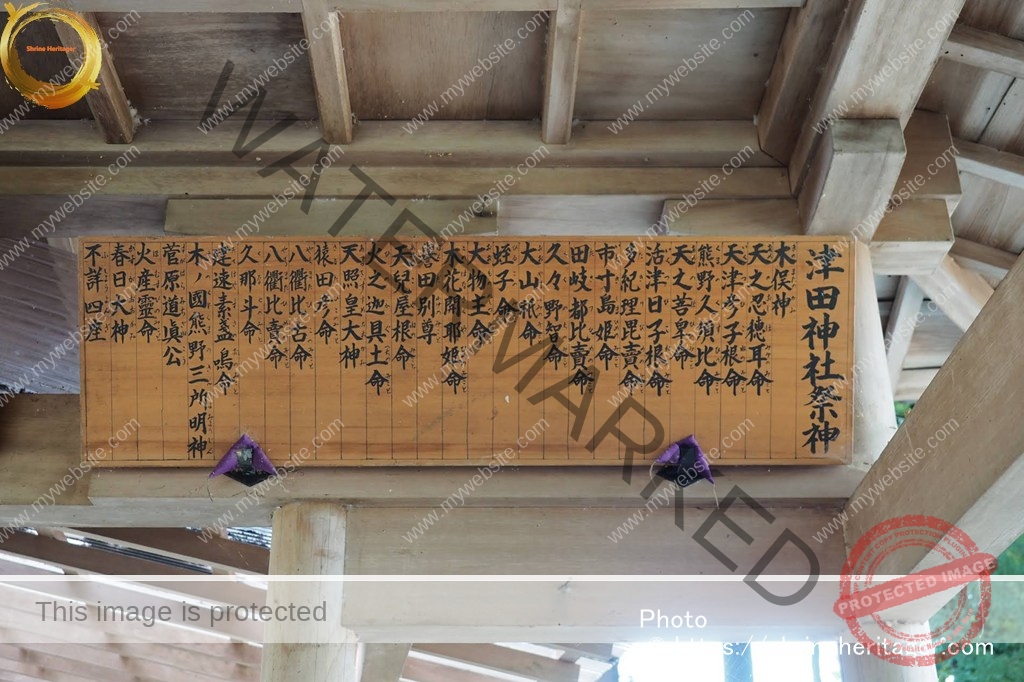 津田神社祭神
木俣神
天之忍穂耳命
天津彦子根命
熊野久須比命
天之菩卑命
活津日子根命
多紀理毘賣命
市寸島姫命
田岐都比賣命
久々野智命
大山祇命
蛭子命
大物主命
木花開耶姫命
譽田別尊
天兒屋根命
火之迦具土命
天照皇大神
猿田彦命
八衢比古命
八衢比賣命
久那斗命
建速素盞嗚命
木ノ國熊野三所明神
菅原道真公
火産靈命
春日大神
不詳四座
Shrine Heritager
WATERMARKED
www.mywebsite.com
PROTECTED IMAGE
This image is protected
Photo
© https://shrineheritager.com